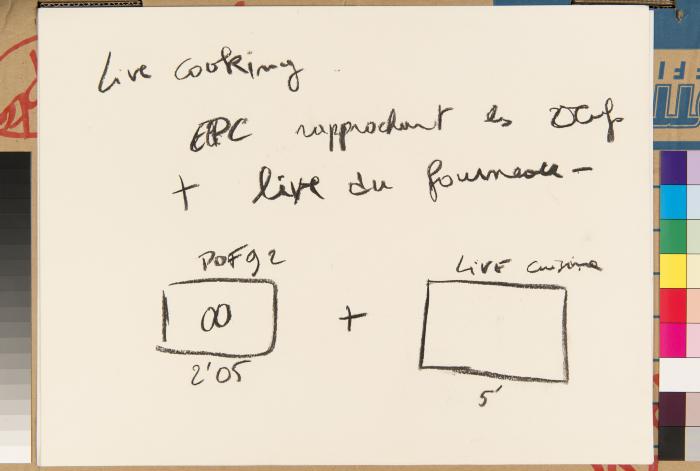 Live cooking
EPC rapprochant les
+ live du fourneau -
POF 92
Live cuisine
00
+
2'05
5'